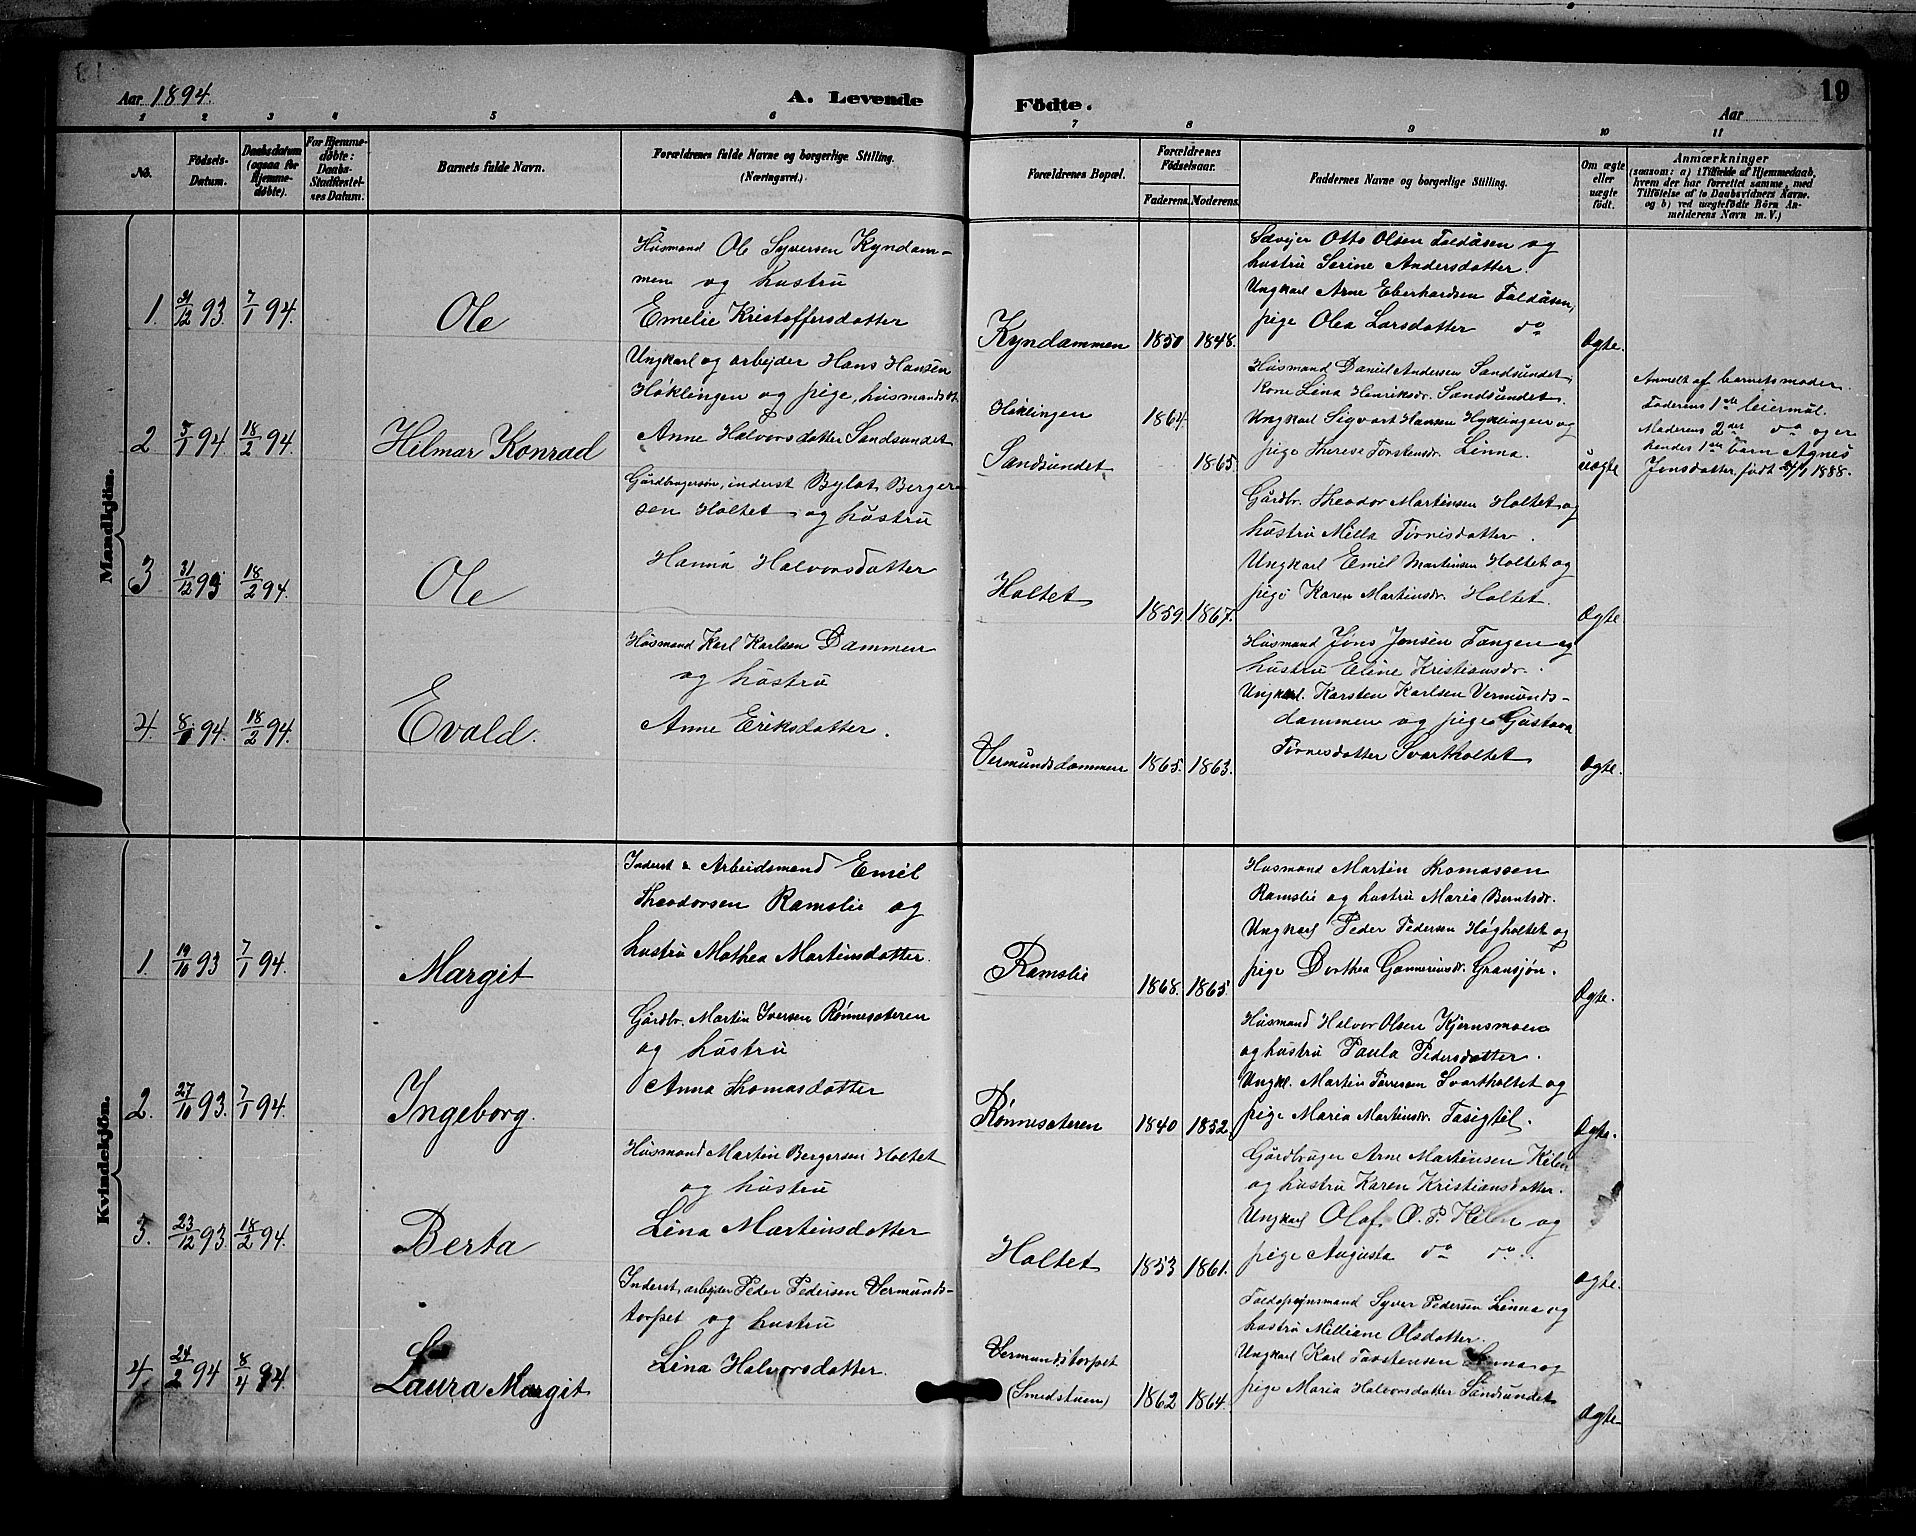 Aar 1894.
A. Levende
Födte.
19
Aar
1 2 3 4 5 6 7 8 9 10 11
No.
Födsels-
Datum.
Daabsdatum
(ogsaa for
Hjemme-
døbte).
For Hjemme-
døbte:
Daabs-
Stadfæstel-
ses Datum.
Barnets fulde Navn.
Forældrenes fulde Navne og borgerlige Stilling.
(Næringsvei.)
Forældrenes Bopæl.
Forældrenes
Födselsaar.
Faderens. Moderens.
Faddernes Navne og borgerlige Stilling.
Om ægte
eller
uægte
født.
Anmærkninger
(saasom: a) i Tilfælde af Hjemmedaab,
hvem der har forrettet samme, med
Tilföielse af to Daabsvidners Navne,
og b) ved uægtefödte Börn An-
melderens Navn m. V.)
Mandkjön.
1. 31/12 93 7/1 94.
Ole
Husmand Ole Syversen Kyndam-
men og hustru
Emelie Kristoffersdatter
Kyndammen 1850 1848.
Otto Olsen Faldåsen og
hustru Serine Andersdatter.
Ungkarl Arne Eberhardsen Faldåsen,
pige Olea Larsdatter do
Ægte.
2 5/1 94 18/2 94.
Helmar Konrad
Ungkarl og arbejder Hans Hansen
Høklingen og pige, husmandsdt.
Anne Halvorsdatter Sandsundet
Høklingen 1864.
Sandsundet 1865.
Husmand Daniel Andersen Sandsundet,
Kone Lina Henriksdr. Sandsundet.
Ungkarl Sigvart Hansen Hyklingen og
pige Therese Torstensdr. Linna.
uægte
Anmelt af barnets moder.
Faderens 1ste leiermål.
Moderens 2det do og er
hendes 1ste barn Agnes
Jonsdatter, født 1888.
3 31/12 93 18/2 94.
Ole
Gårdbrugersøn, inderst Bylat Berger-
sen Holtet og hustru
Hanna Halvorsdatter
Holtet 1859. 1867.
Gårdbr. Theodor Martinsen Holtet og
hustru Mella Tørrisdatter.
Ungkarl Emil Martinsen Holtet og
pige Karen Martinsdr. Holtet.
Ægte
4 8/1 94. 18/2 94.
Evald.
Husmand Karl Karlsen Dammen
og hustru
Anne Eriksdatter.
Vermundsdammen 1865. 1863.
Husmand Jøns Jensen Tangen og
hustru Eline Kristiansdr.
Ungkarl. Karsten Karlsen Vermunds-
dammen og pige Gustava
Tørrisdatter Svartholtet
Ægte.
Kvindekjön.
1. 19/10 93 7/1 94.
Margit
Inderst & Arbeidsmand Emil
Theodorsen Ramslie og
hustru Mathea Martinsdatter.
Ramslie 1868. 1865.
Husmand Martin Thomassen
Ramslie og hustru Maria Berntsdr.
Ungkarl Peder Pedersen Høgholtet og
pige Dorthea Gunneriusdr. Gransjøn.
Ægte.
2. 27/10 93. 7/1 94.
Ingeborg.
Gårdbr. Martin Iversen Rønnesæteren
og hustru
Anna Thomasdatter
Rønnesæteren 1840 1852.
Husmand Halvor Olsen Kjernsmoen
og hustru Paula Pedersdatter.
Ungkl. Martin Tørresen Svartholtet og
pige Maria Martinsdr. Fasigtil.
Ægte.
3. 23/12 93. 18/2 94.
Berta
Husmand Martin Bergersen Holtet
og hustru
Lina Martinsdatter
Holtet 1853 1861.
Gårdbruger Arne Martinsen Kilen
og hustru Karen Kristiansdatter.
Ungkarl Olaf O. P. Kilen og
pige Augusta do do.
ægte.
4. 24/2 94 8/4 94.
Laura Margit
Inderst, arbejder Peder Pedersen Vermunds-
torpet og hustru
Lina Halvorsdatter.
Vermundstorpet
(Smedstuen) 1862 1864.
Syver Pedersen Linna og
hustru Milliane Olsdatter.
Ungkarl Karl Torstensen Linna og
pige Maria Halvorsdatter Sandsundet
Ægte